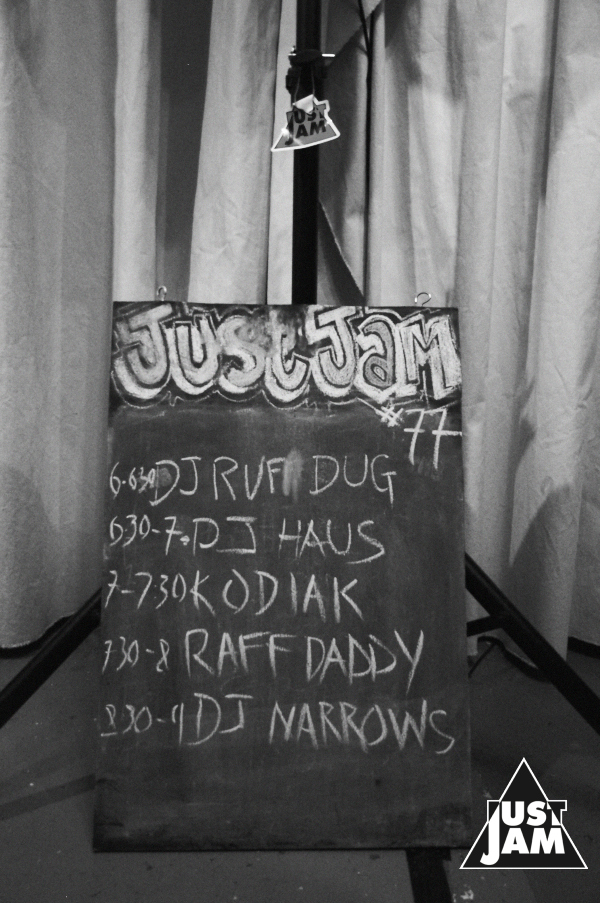 JUST
JAM
Just Jam
#77
6-630 DJ RUF DUG
630-7 DJ HAUS
7-730 KODIAK
730-8 RAFF DADDY
830-9 DJ NARROWS
JUST
JAM